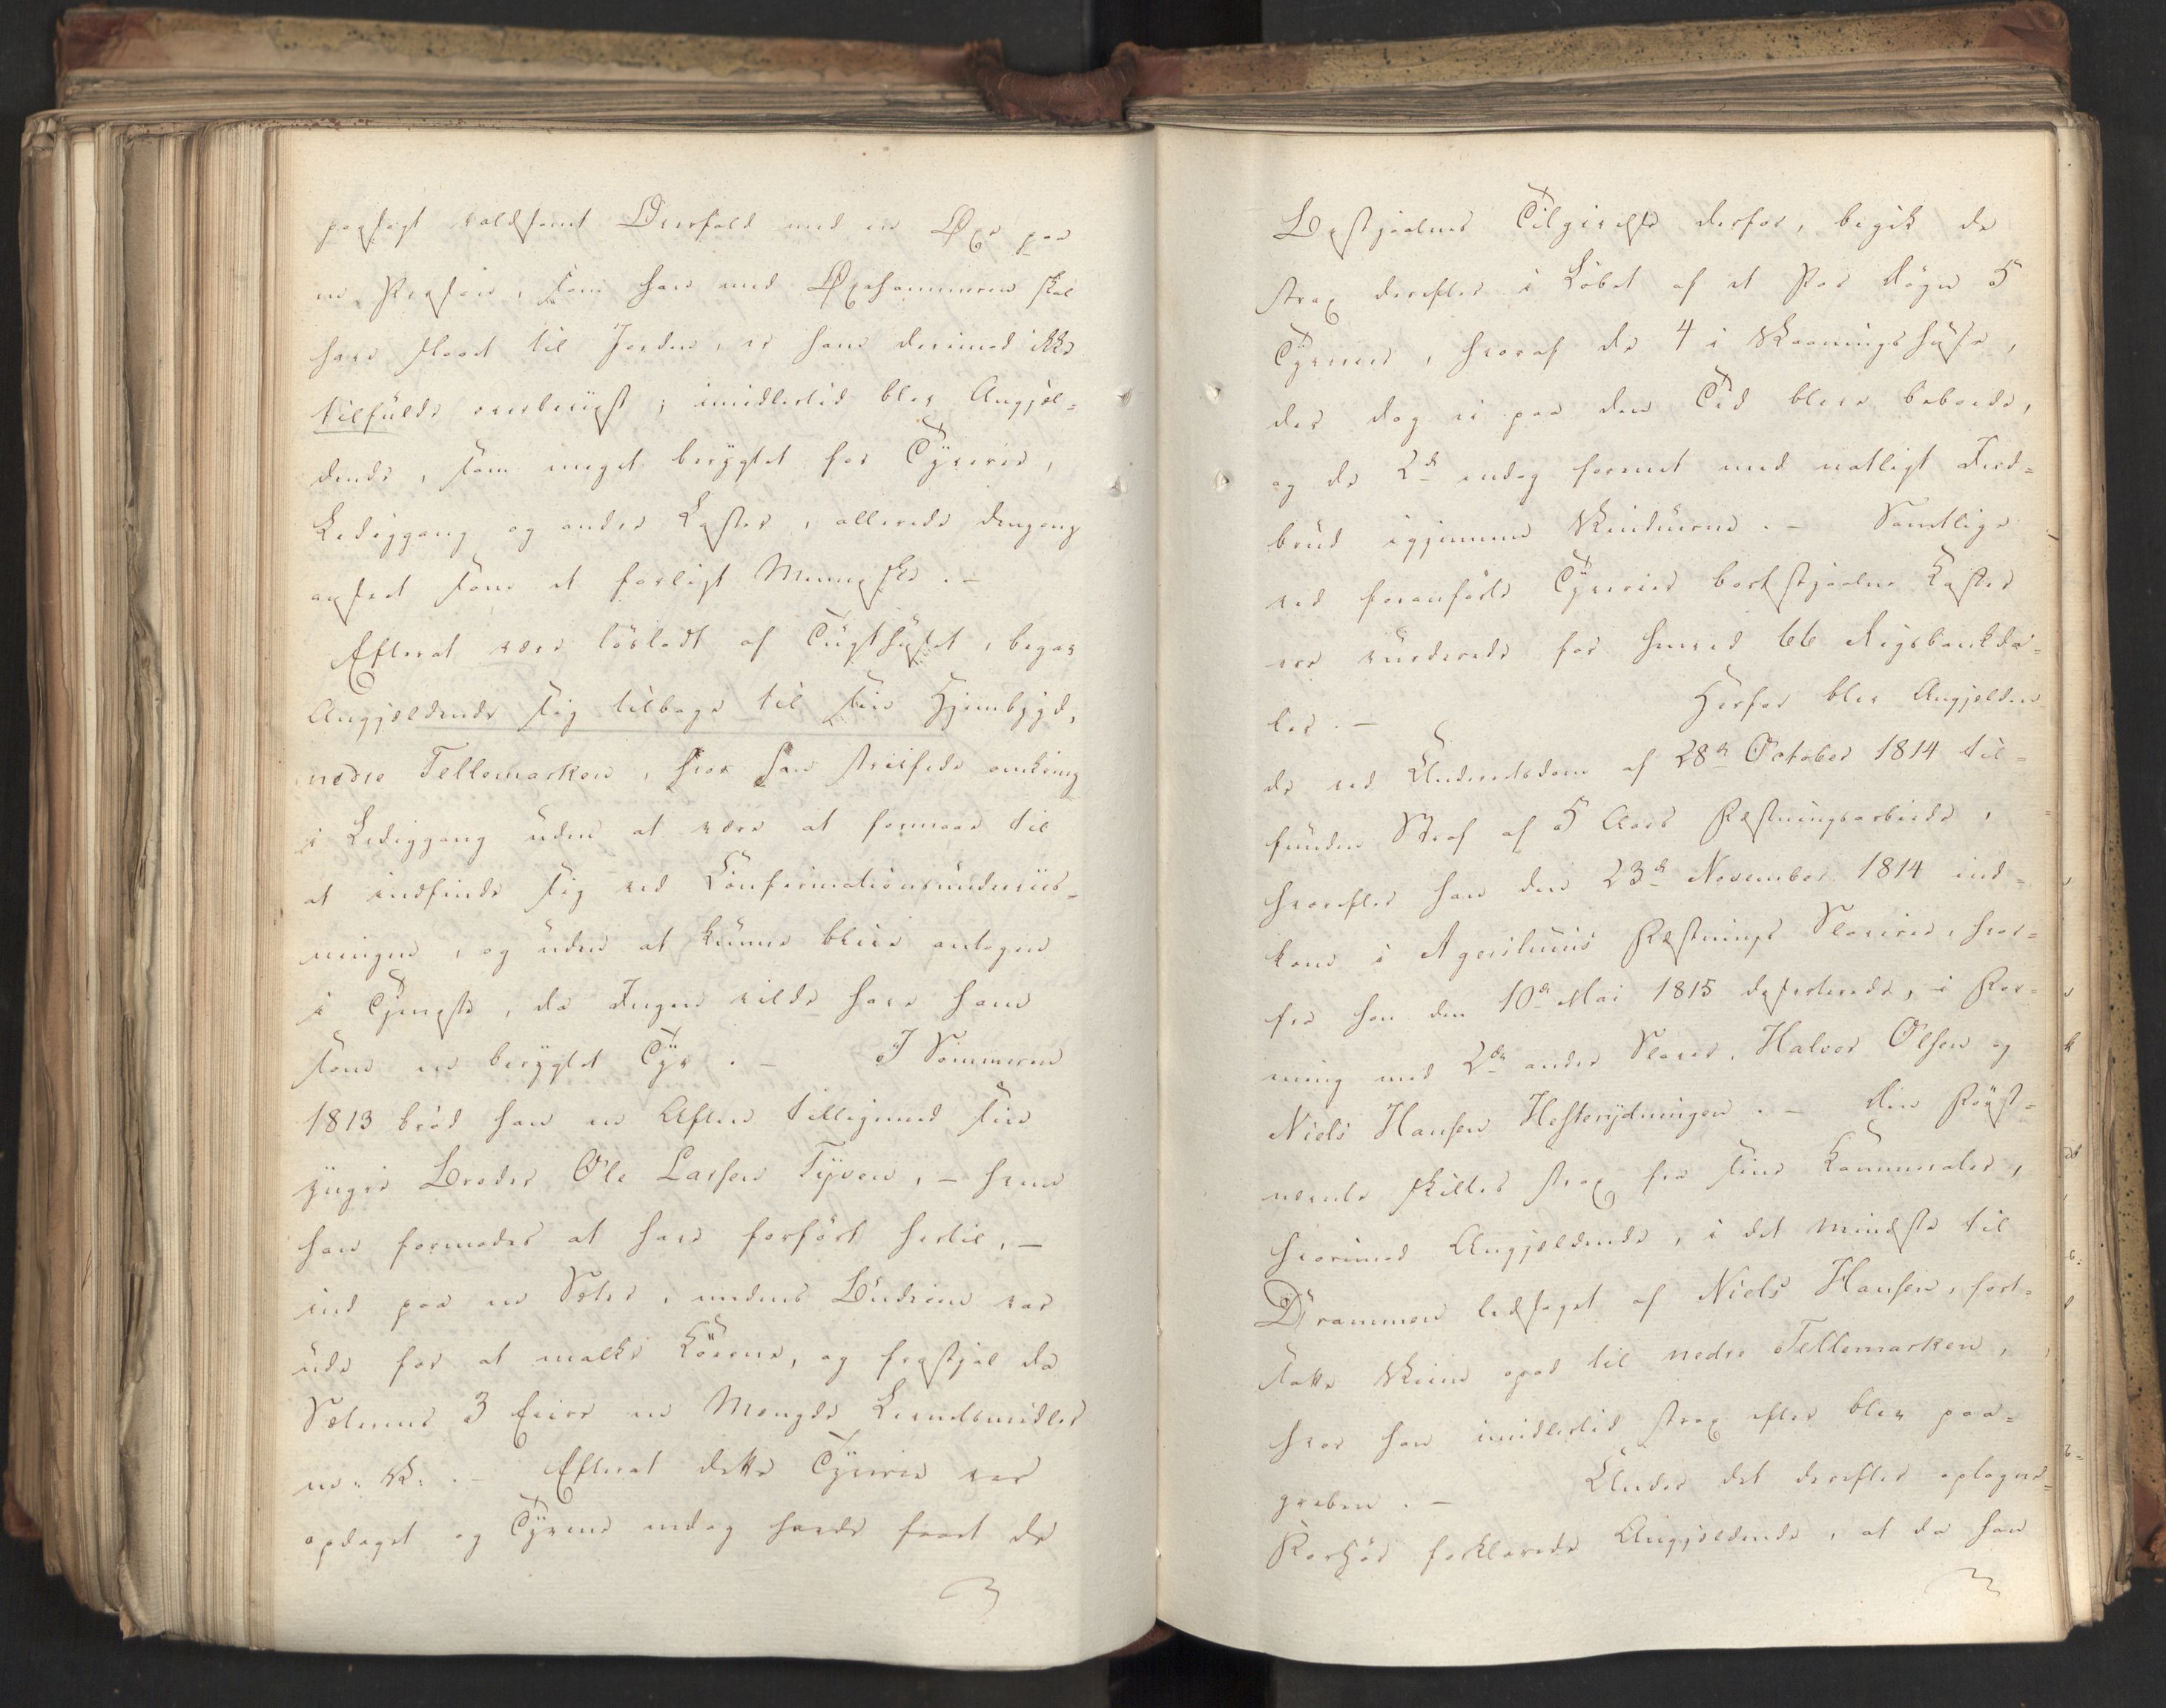 paasagt voldsomt Overfald med en Øxe paa
en Person, som han med Øxehammeren skal
have slaaet til Jorden, er han derimod ikke
tilfulde overbeviist; imidlertid blev Angjel=
dende, som meget berygtet for Tyverie,
Lediggang og andre Laster, allerede dengang
anseet som et farligt Menneske. –
Efterat være løsladt af Tugthuset, begav
Angjeldende sig tilbage til sin Hjembygd,
nedre Tellemarken, hvor han streifede omkring
i Lediggang uden at være at formaae til
at indfinde sig ved Confirmationsunderviis=
ningen, og uden at kunne blive antagen
i Tjeneste, da Ingen vilde have ham
som en berygtet Tyv. – I Sommeren
1813 brød han en Aften tilligemed sin
yngre Broder Ole Larsen Tyven, – hvem
han formodes at have forført hertil, –
ind paa en Sæter, imedens Budeien var
ude for at malke Køerne, og frastjal da
Sæterens 3 Eiere en Mængde Levnetsmidler
m: V: . – Efterat dette Tyverie var
opdaget og Tyvene endog havde faaet de
Bestjaalnes Tilgivelse derfor, begik de
strax derefter i Løbet af et Par Døgn 5
Tyverier, hvoraf de 4 i Vaaningshuse,
der dog ei paa den Tid bleve beboede,
og de 2de endog forenet med natligt Ind=
brud igjennem Vinduerne. – Samtlige
ved foranførte Tyverier bortstjaalne Koster
ere vurderede for henved 66 Rigsbankda=
ler. – Herfor blev Angjelden
de ved Underretsdom af 28de October 1814 til=
funden Straf af 5 Aars Fæstningsarbeide,
hvorefter han den 23de November 1814 ind=
kom i Agerihuus Fæstnings Slaverie, hvor=
fra han den 10de Mai 1815 deserterede, i For=
ening med 2de andre Slaver, Halvor Olsen og
Niels Hansen Hesterydningen. – Den Først=
nævnte skiltes strax fra sine Kammerater,
hvorimod Angjeldende, i det mindste til
Drammen ledsaget af Niels Hansen, fort=
satte Veien opad til nedre Tellemarken,
hvor han imidlertid strax efter blev paa=
greben. – Under det derefter optagne
Forhør forklarede Angjeldende, at da han